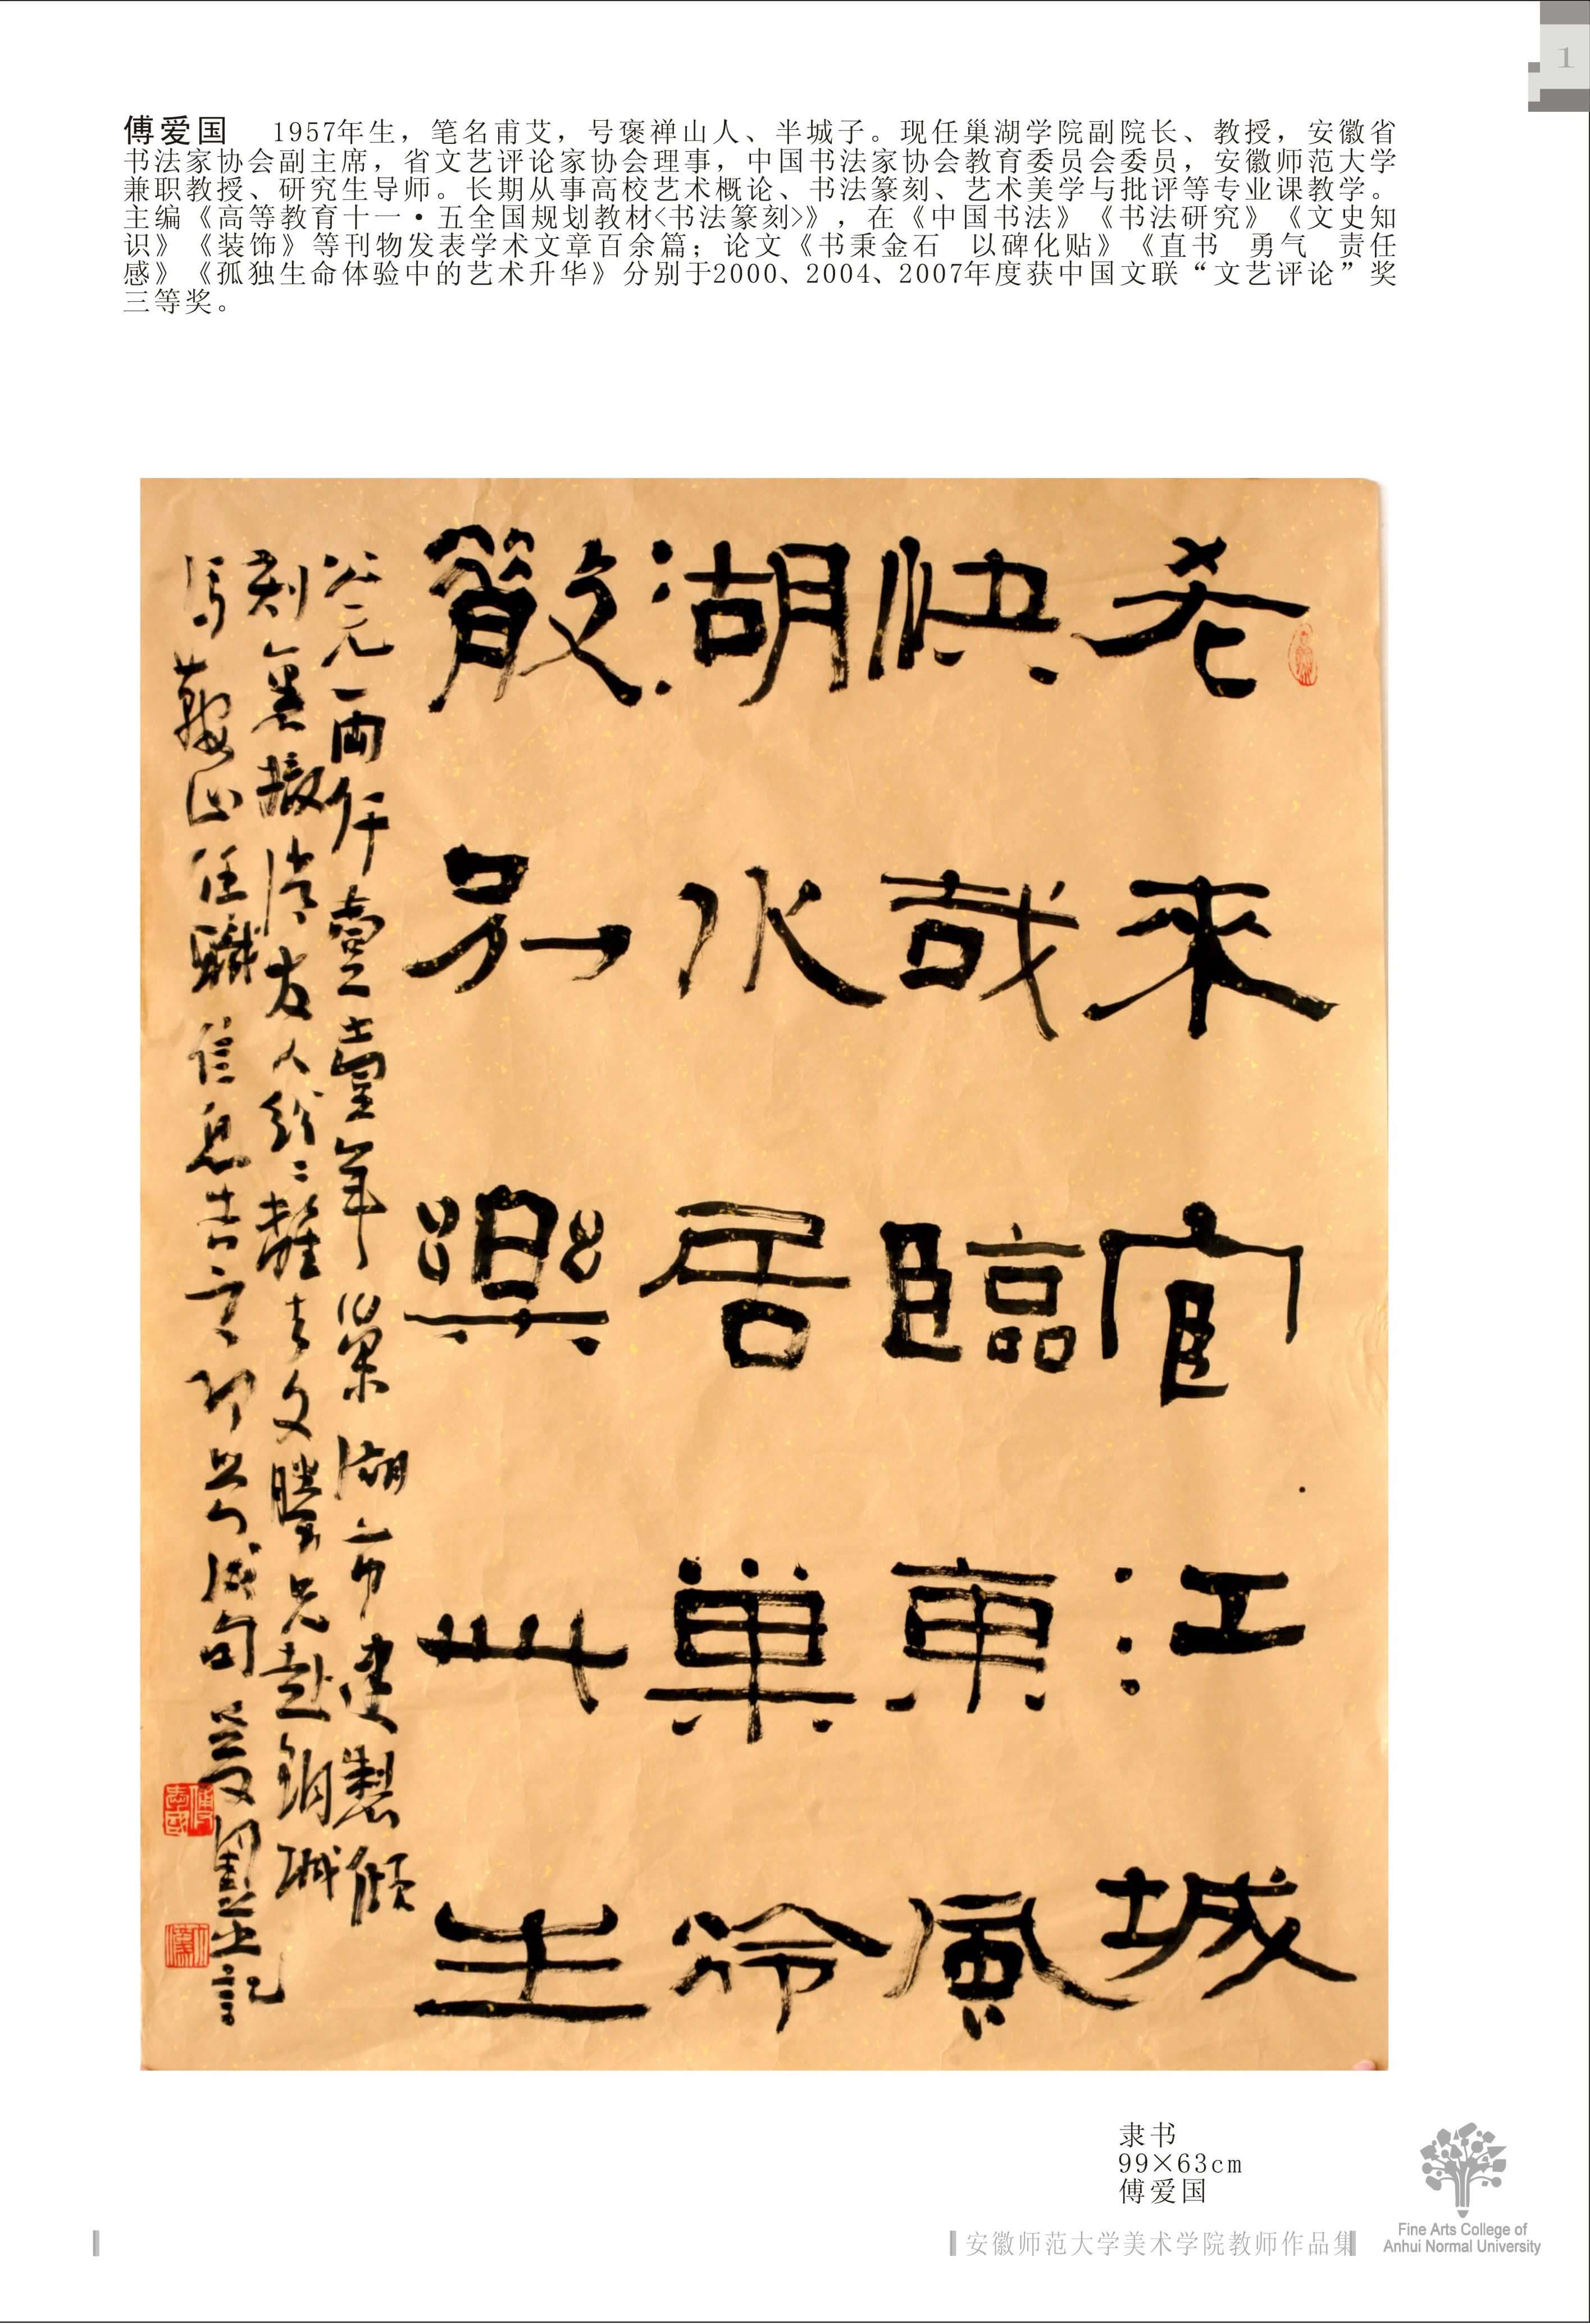 1
傅爱国 1957年生，笔名甫艾，号褒禅山人、半城子。现任巢湖学院副院长、教授，安徽省
书法家协会副主席，省文艺评论家协会理事，中国书法家协会教育委员会委员，安徽师范大学
兼职教授、研究生导师。长期从事高校艺术概论、书法篆刻、艺术美学与批评等专业课教学。
主编《高等教育十一·五全国规划教材<书法篆刻>》，在《中国书法》《书法研究》《文史知
识》《装饰》等刊物发表学术文章百余篇；论文《书秉金石 以碑化贴》《直书 勇气 责任
感》《孤独生命体验中的艺术升华》分别于2000、2004、2007年度获中国文联“文艺评论”奖
三等奖。
老來宦江城
快哉臨東風
湖水居巢冷
散別樂生
公元兩仟壹壹年巢湖市建製傾
刻撤消友人紛〻離去文騰兄赴鋼城
馬鞍山任職信息即成句愛國並記
隶书
99×63cm
傅爱国
安徽师范大学美术学院教师作品集
Fine Arts College of
Anhui Normal University